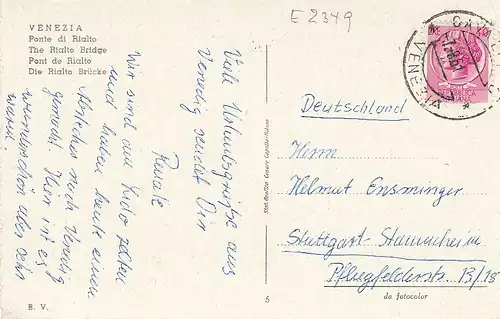 E 2349
VENEZIA
Ponte di Rialto
The Rialto Bridge
Pont de Rialto
Die Rialto Brücke
Viele Urlaubsgrüße aus
Venedig sendet Dir
Renate
Wir sind am Lido zelten
und haben heute einen
Abstecher nach Venedig
gemacht. Hier ist es
wunderschön aber sehr
warm.
Deutschland
Herrn
Helmut Ensminger
Stuttgart-Stammheim
Pflugfelderstr. 13/18
E. V.
5
da fotocolor